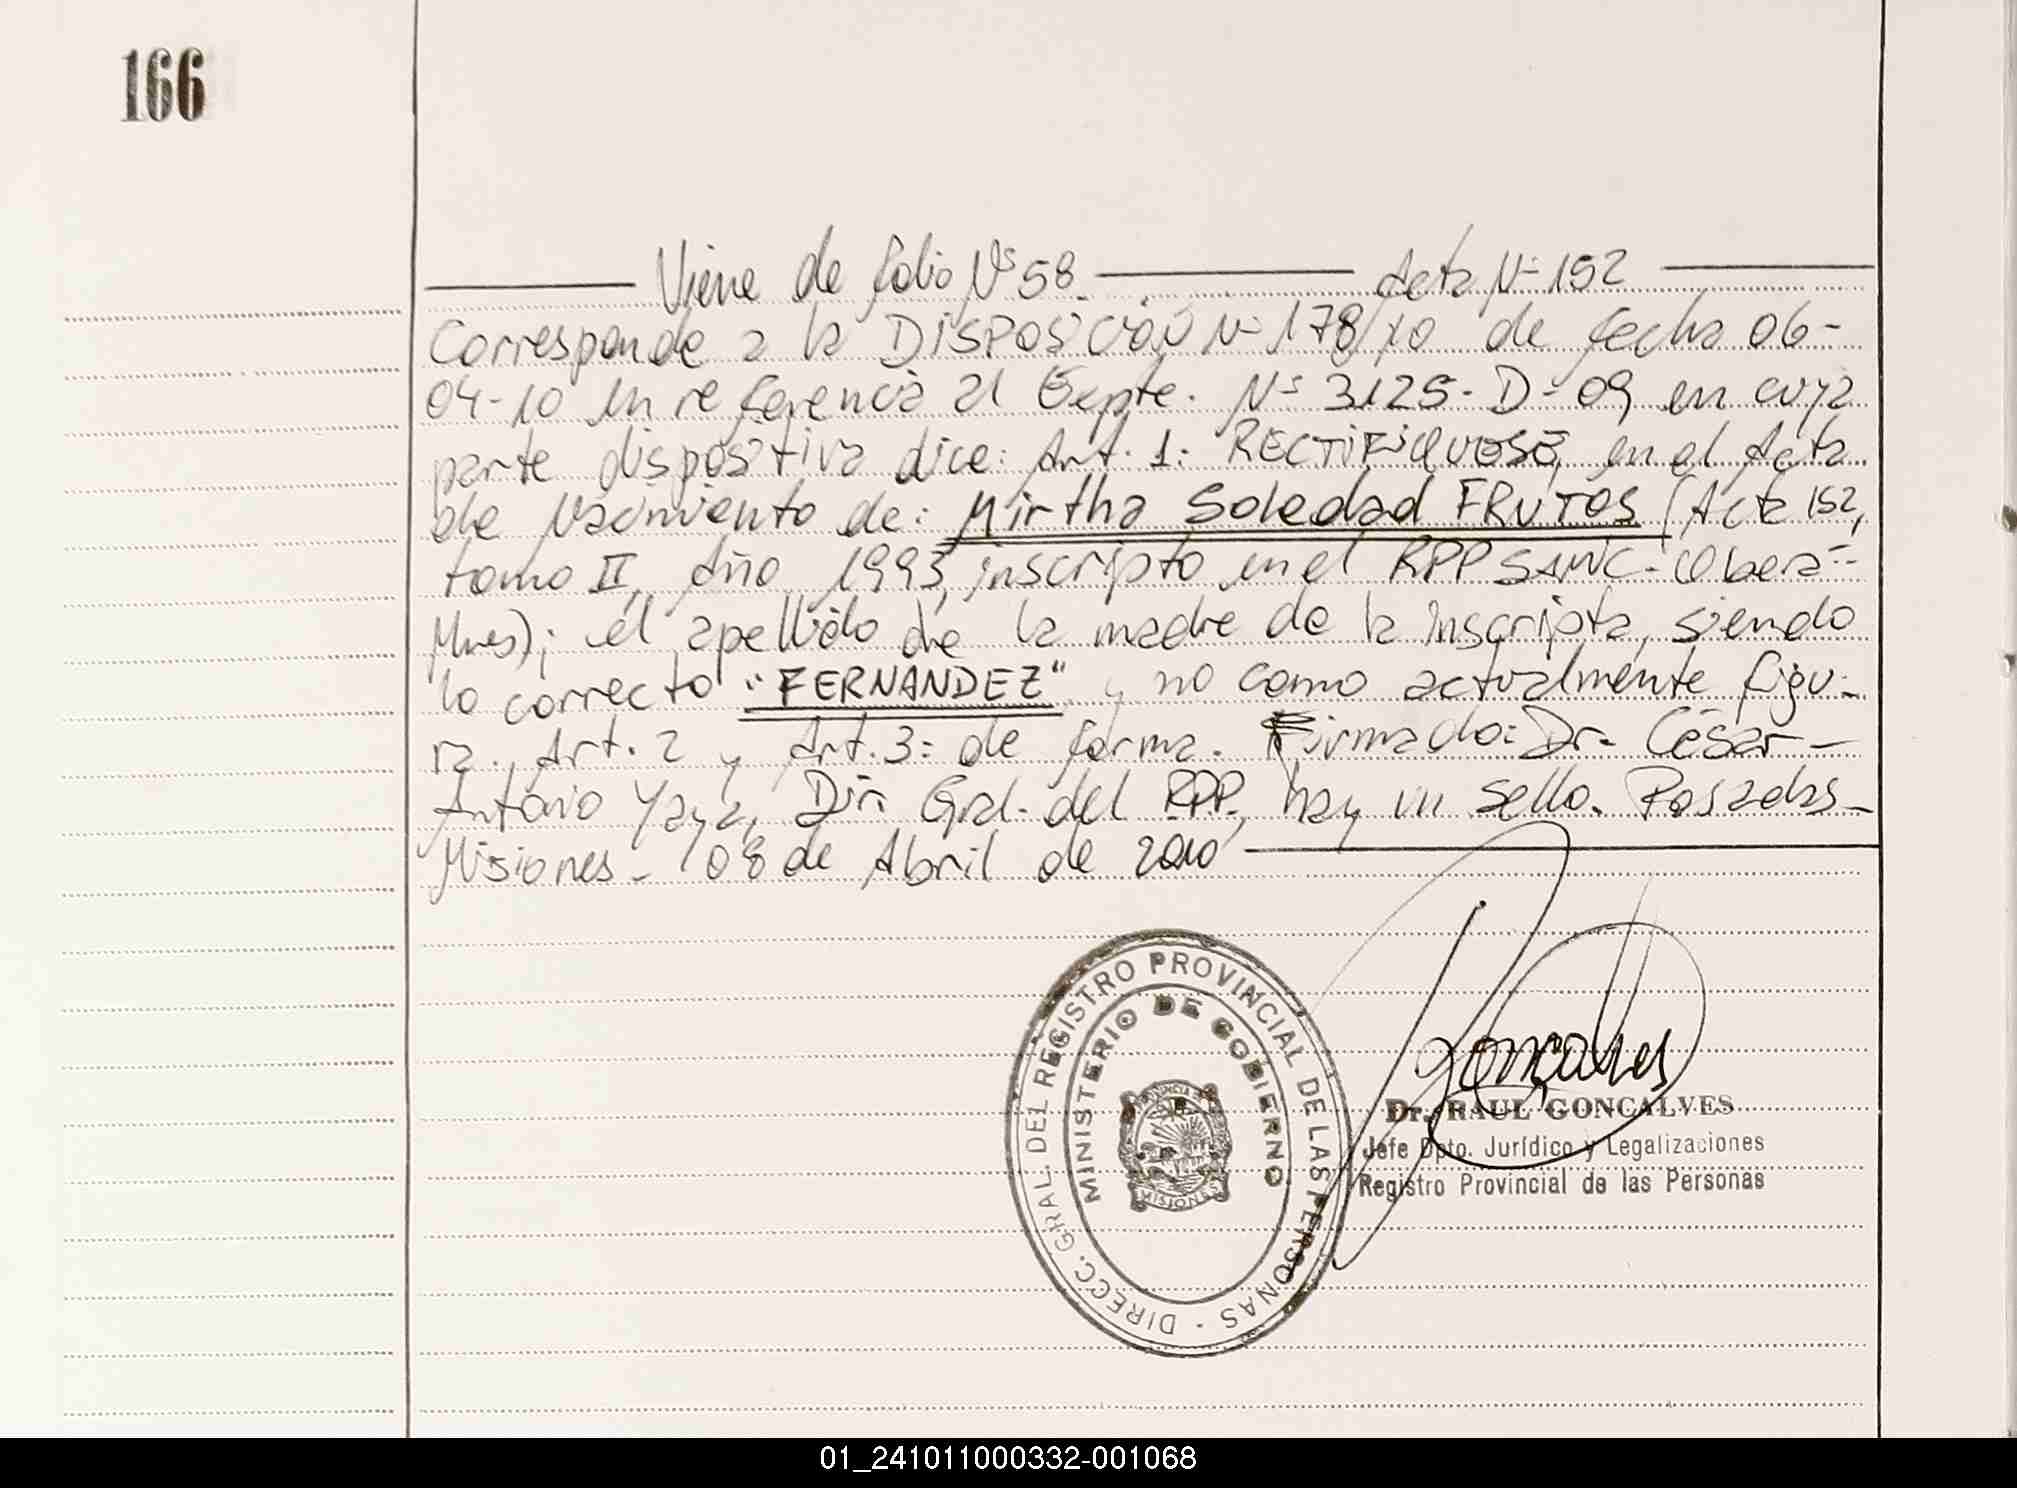 166
Viene de folio Nº 58. Acta Nº 152
Corresponde a la DISPOSICIÓN Nº 178/10 de fecha 06-
04-10 en referencia al Expte. Nº 3125-D-09 en cuya
parte dispositiva dice: Art. 1: RECTIFIQUESE, en el Acta
de Nacimiento de: Mirtha Soledad FRUTOS (Acta 152,
tomo II, Año 1993, inscripto en el RPP Oberá-
Mnes); el apellido de la madre de la inscripta, siendo
lo correcto "FERNANDEZ" y no como actualmente figu-
ra. Art. 2 y Art. 3: de forma. Firmado: Dr. César
Antonio Yaya, Dir. Gral. del RPP, hay un sello. Posadas
Misiones - 08 de Abril de 2010
DIRECC. GRAL. DEL REGISTRO PROVINCIAL DE LAS PERSONAS -
MINISTERIO DE GOBIERNO
PROVINCIA DE
MISIONES
Gonçalves
Dr. RAUL GONCALVES
Jefe Dpto. Jurídico y Legalizaciones
Registro Provincial de las Personas
01_241011000332-001068